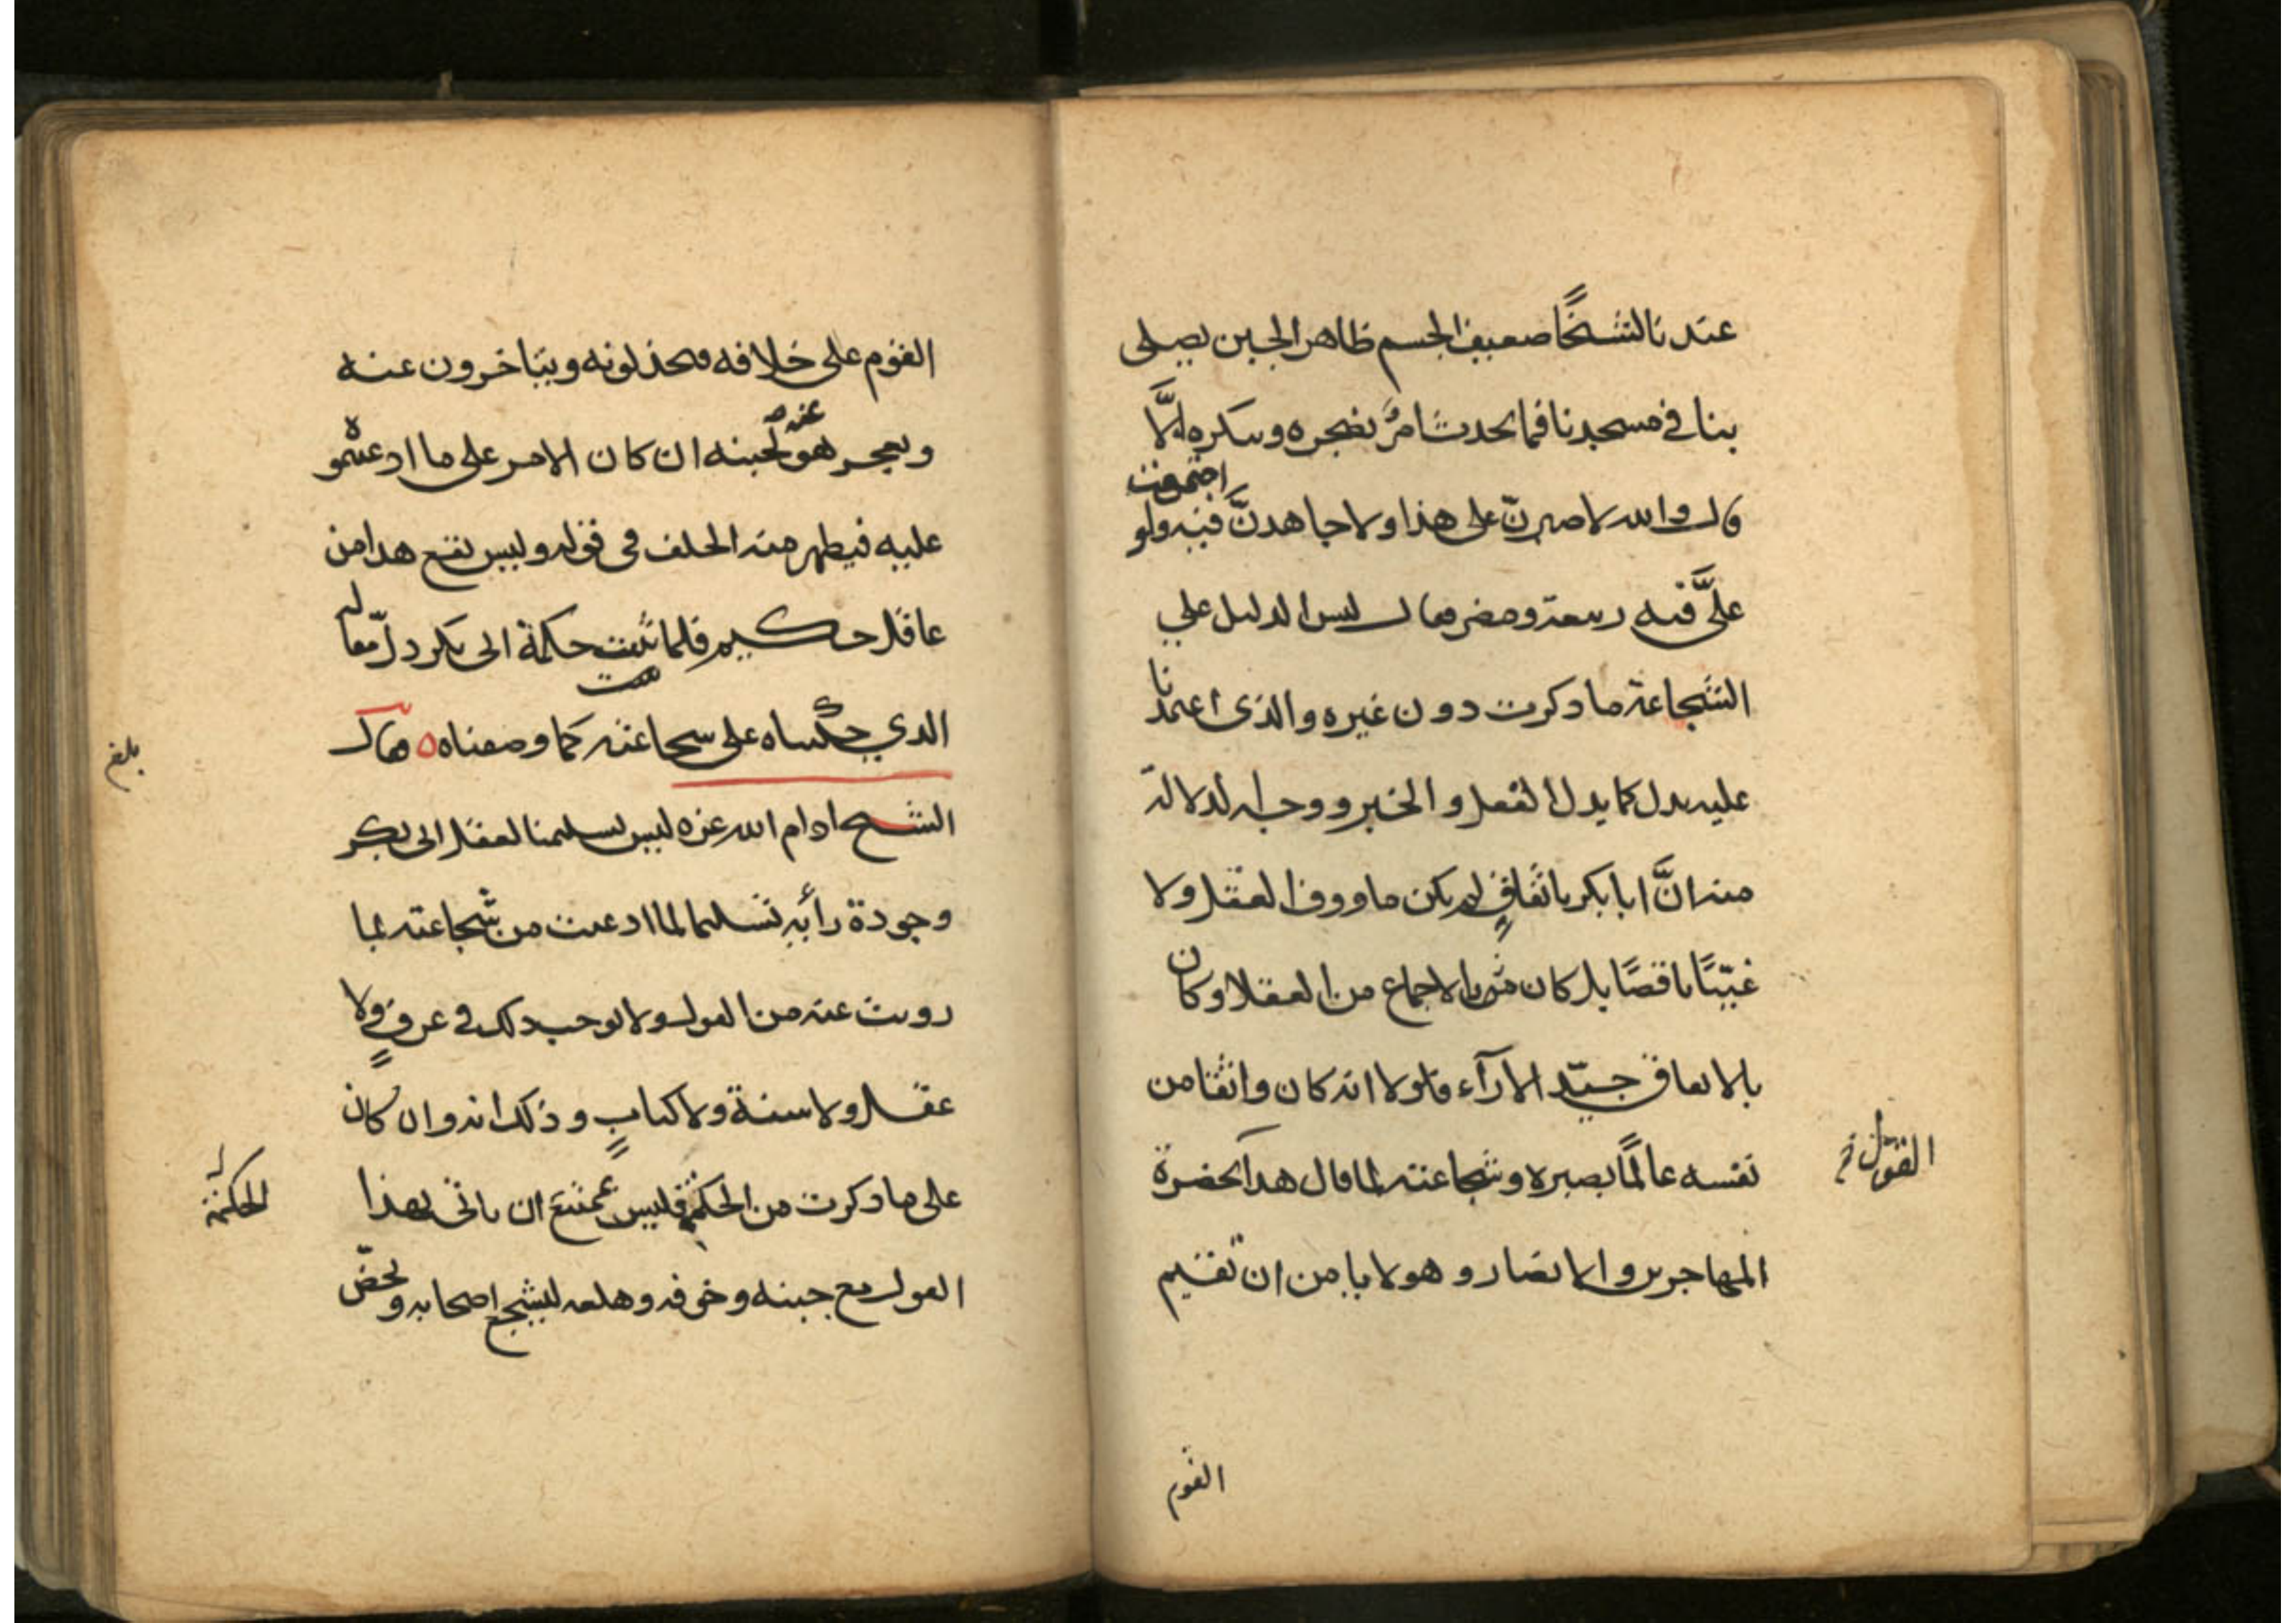 عندنا لشيخًا ضعيف الجسم ظاهر الجبن يصلى
بنا في مسجدنا فما يحدث امرٌ يضجره وينكره إلَّا
قال والله لاصبرنّ على هذا ولاجاهدنَّ فيه ولو
اجتمعت
علىَّ فيه ربيعة ومضر فقال ليس الدليل علي
الشجاعة ما ذكرت دون غيره والذى اعتمدنا
عليه يدل كما يدل الفعل والخبر ووجه الدلالة
منه انَّ ابا بكر باتفاقٍ لم يكن ماووف العقل ولا
غبيًّا ناقصًا بل كان بالاجماع من العقلا وكان
بالاتفاق جيّد الارآء فلولا انه كان واثقا من
نفسه عالمًا بصبره وشجاعته لما قال هذا بحضرة
القول
المهاجرين والانصار وهو لا يامن ان يقيم
القوم
القوم على خلافه فيخذلونه ويتاخرون عنه
ويعجز هو لجبنه ان كان الامر على ما ادعيتموه
عنه
عليه فيظهر منه الخلف فى قوله وليس يقع هذا من
عاقل حكيم فلما ثبتت حكمة ابى بكر دلّ مقاله
الذي حكيناه على شجاعته كما وصفناه ٥ فقال
بلغ
الشيخ ادام الله عزه ليس تسليمنا لعقل ابى بكر
وجودة رأيه تسليما لما ادعيت من شجاعته بما
رويت عنه من القول ولا يوجب ذلك في عرفٍ ولا
عقل ولا سنة ولا كتابٍ وذلك انه وان كان
على ما ذكرت من الحكمة فليس يمتنع ان ياتى بهذا
الحكمة
القول مع جبنه وخوفه وهلعه ليشجع اصحابه ويحضّ